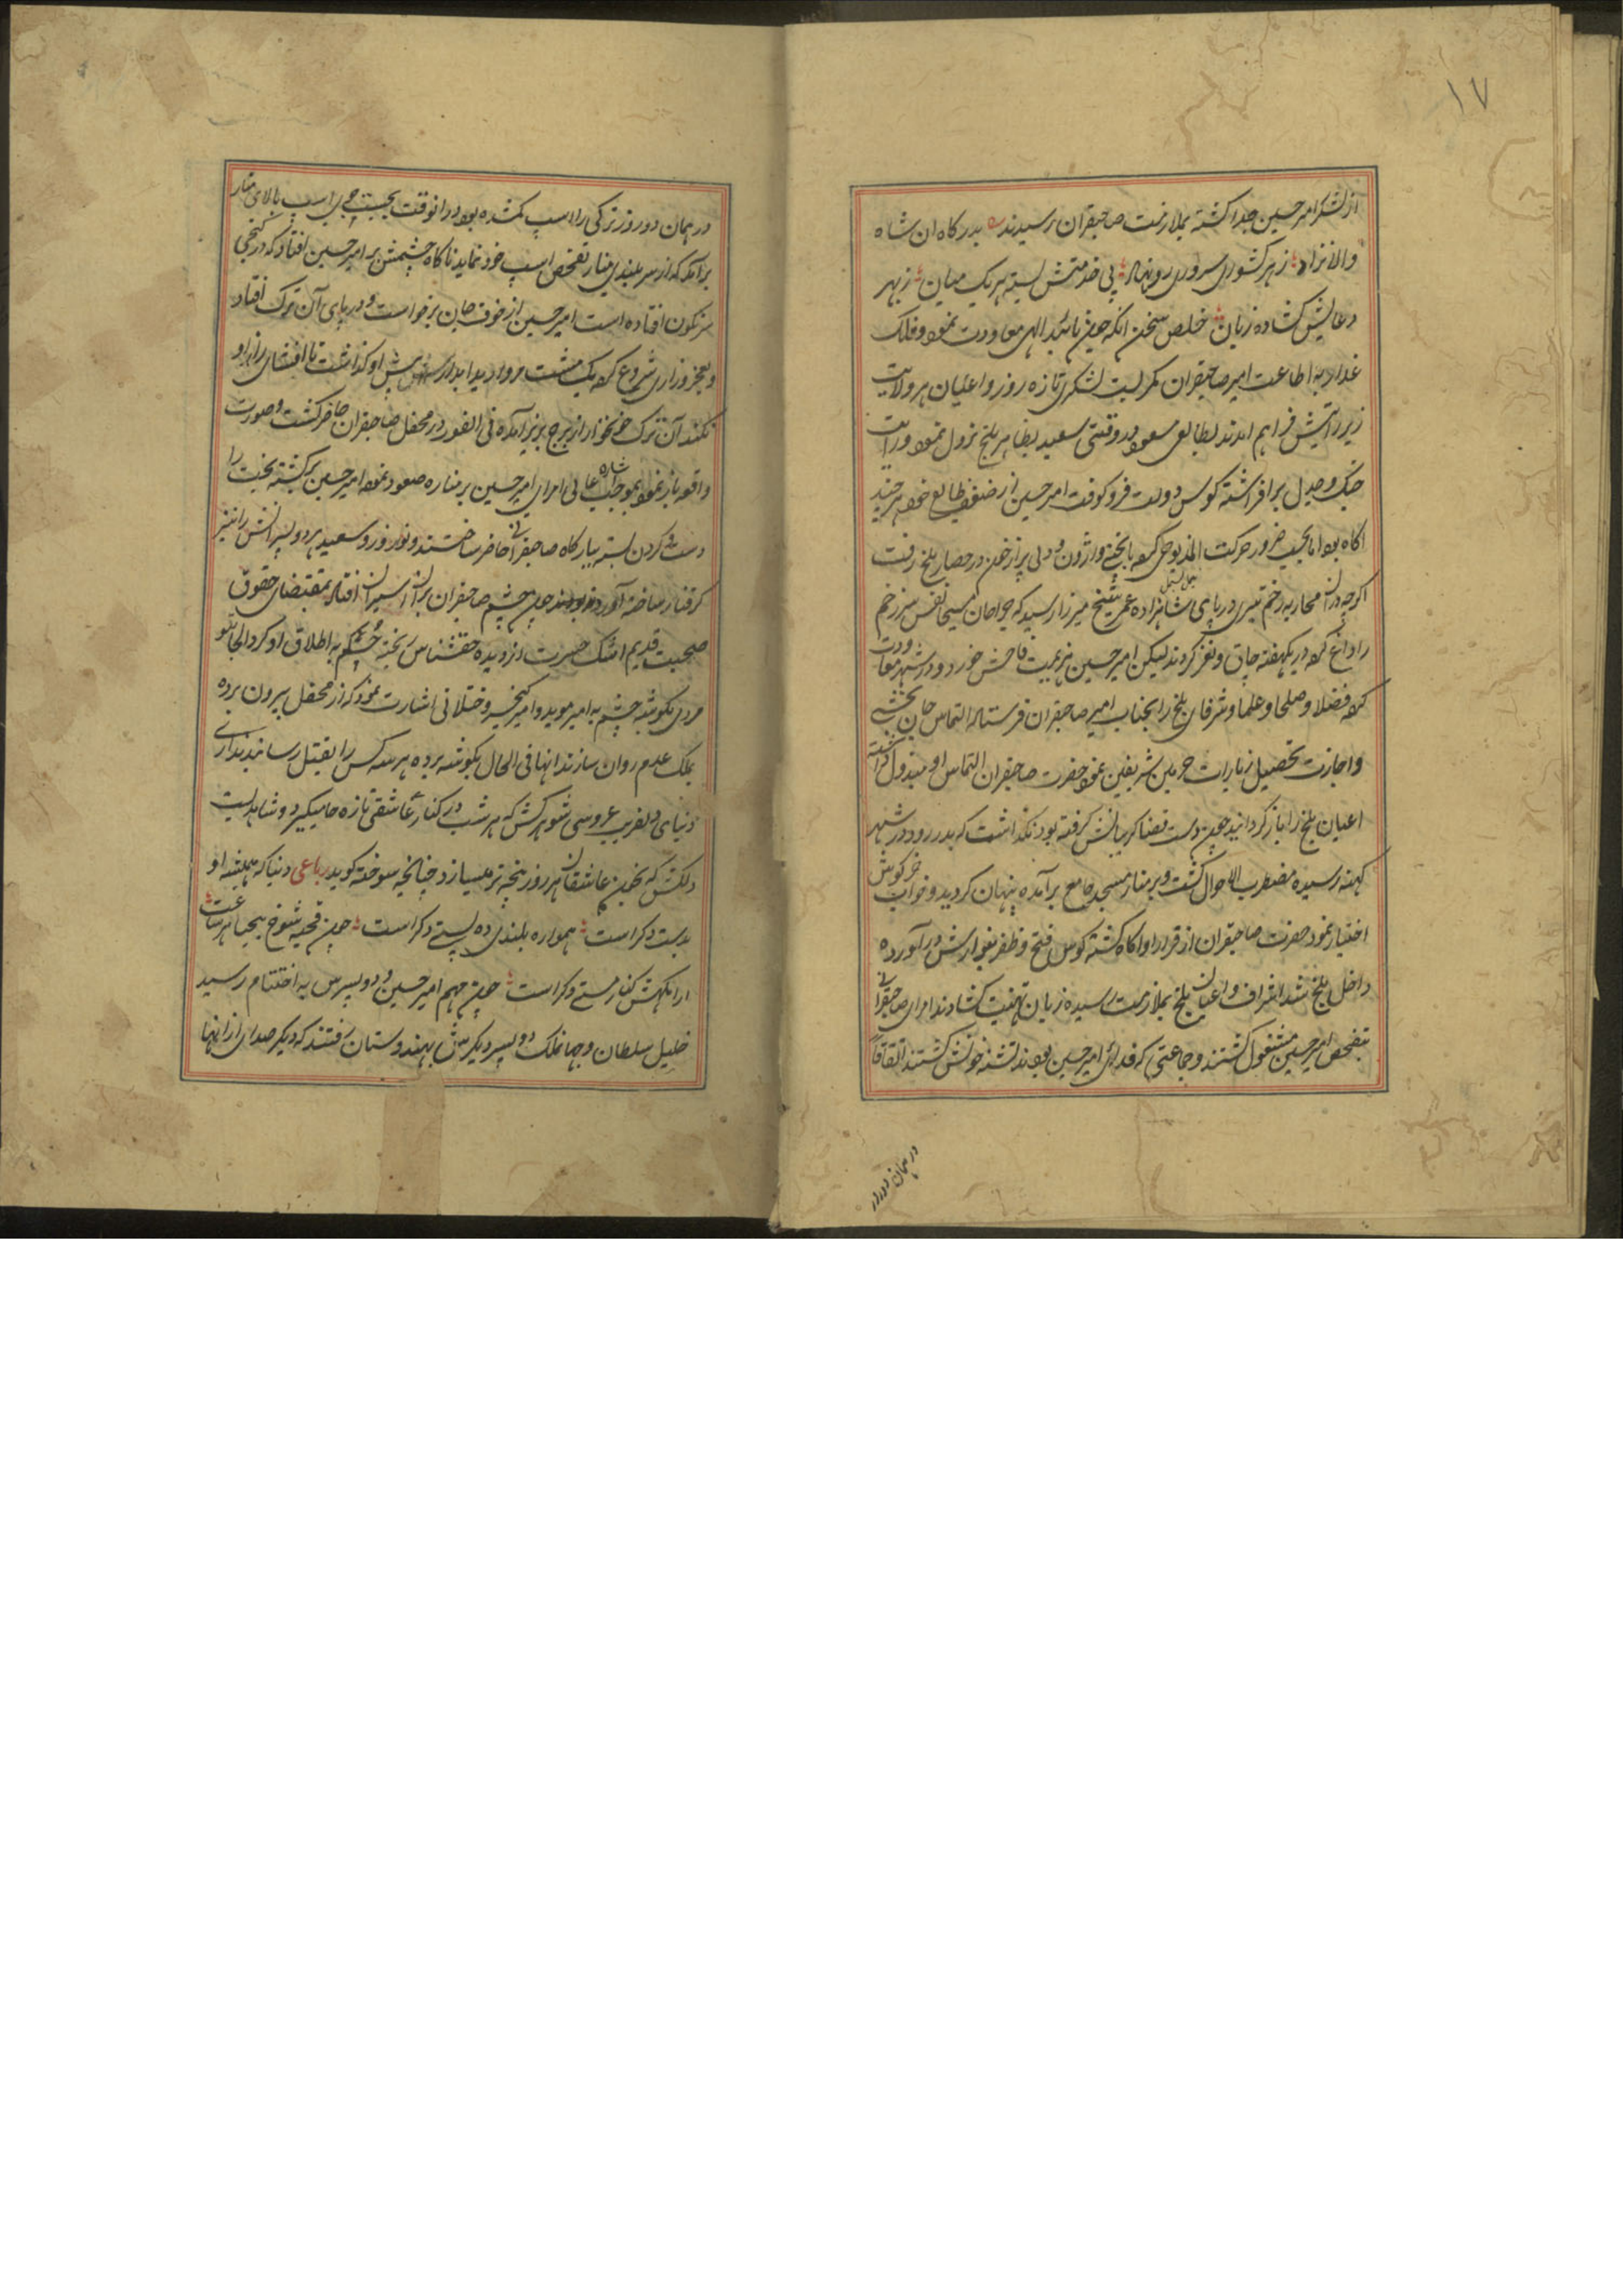 ۱۷
از لشکر امیر حسین جدا کشته بملازمت صاحبقران رسیدند بدرکاه ان شاه
والانژاد ز هر کشوری سروری رو نهاد پی خدمتش بسته هر یک میان ز بهر
دعایش کشاده زبان خلص سخن انکه چون تائید الهی معاودت نمود و فلک
غدار به اطاعت امیر صاحبقران کمر بست لشکری تازه روز و اعیان هر ولایت
زیر رایتش فراهم امدند بطالع مسعود در وقتی سعید بظاهر بلخ نزول نمود و رایت
جنک وجدل برافراشته کوس دولت فرو کوفت امیر حسین از ضعف طالع خود هر چند
اکاه بود اما بحسب ضرور حرکت المذبوحی کرده با بختی واژون و دلی پر از خون در حصار بلخ رفت
اکرچه دران محاربه زخم تیری در پای شاهزاده عمر شیخ میرزا رسید که جراحان مسیحا نفس سر زخم
را داغ کرده در یکهفته چاق و نغز کردند لیکن امیر حسین هزیمت فاحش خورد و در شهر معاودت
کرده فضلا و صلحا و علما و شرفای بلخ را بجناب امیر صاحبقران فرستاده التماس جان بخشی
و اجازت تحصیل زیارات حرمین شریفین نمود حضرت صاحبقران التماس او مبذول داشته
اعیان بلخ را باز کردانید چون دست قضا کریبانش کرفته بود نکذاشت که بدر رود در شهر
کهنه رسیده مضطرب الاحوال کشت و بر منار مسجد جامع برآمده پنهان کردید و خواب خرکوش
اختیار نمود حضرت صاحبقران از قرار او اکاه کشته کوس فتح و ظفر بنوازش درآورده
داخل بلخ شد اشراف و اعیان بلخ بملازمت رسیده زبان تهنیت کشادند امرای صاحبقرانی
بتفحص امیر حسین مشغول کشتند و جماعتی که فدائی امیر حسین بودند تشنه خونش کشتند اتفاقاً
در همان دو روز
در همان دو روز ترکی را اسپ کمشده بود در انوقت بجست جوی اسپ بالای منار
برامد که از سر بلندی منار تفحص اسپ خود نماید ناکاه چشمش بر امیر حسین افتاد که در کنجی
سرنکون افتاده است امیر حسین از خوف جان برخواست و در پای آن ترک افتاد
و بعجز و زاری شروع کرده یک مشت مروارید ابدار پیش او کذاشت تا افشای راز او
نکند آن ترک خونخوار از برج بزیر آمده فی الفور در محفل صاحبقران حاضر کشت و صورت
واقعه باز نمود بموجب اشاره عالی امرای امیر حسین بر مناره صعود نموده امیر حسین برکشته بخت را
دست و کردن بسته ببارکاه صاحبقرانی حاضر ساختند و نوروز و سعید هر دو پسرانش را نیز
کرفتار ساخته آورده بودند چون چشم صاحبقران بران اسیران افتاد بمقتضای حقوق
صحبت قدیم اشک حسرت از دیده حقشناس ریخته حکم به اطلاق او کرد الجایتو
مردی بکوشه چشم به امیر موید و امیر کیخسرو ختلانی اشارت نمود که از محفل بیرون برده
بملک عدم روان سازند انها فی الحال بکوشه برده هر سه کس را بقتل رسانیدند آری
دنیای دلفریب عروسی شوهرکش که هر شب در کنار عاشقی تازه جا میکیرد و شاهدیست
دلکش که بخون عاشقان هر روز پنجه تر میسازد چنانچه سوخته کوید رباعی دنیا که همیشه او
بدست دکر است همواره بلندی ده پستی دکر است چون قحبه شوخ بیحیا هر ساعت
ارامکهش کنار مستی دکر است چون مهم امیر حسین و دو پسرس به اختتام رسید
خلیل سلطان و جهانملک دو پسر دیکرش بهندوستان رفتند که دیکر صدای از انها